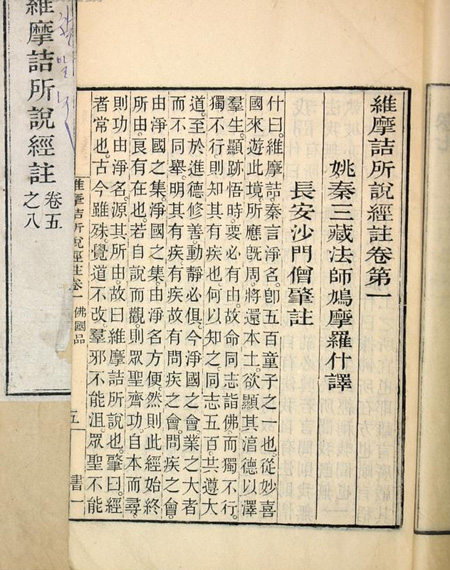 維摩詰所說經註卷第一
姚秦三藏法師鳩摩羅什譯
長安沙門僧肇註
什曰。維摩詰。秦言淨名。卽五百童子之一也。從妙喜
國來遊此境。所應旣周。將還本土。欲顯其淳德。以澤
羣生。顯跡悟時。要必有由。故命同志詣佛。而獨不行。
獨不行。則知其有疾也。何以知之。同志五百。共遵大
道。至於進德修善。動靜必俱。今淨國之會。業之大者。
而不同舉。明其有疾。有疾故有問疾之會。問疾之會。
由淨國之集。淨國之集。由淨名方便。然則此經始終
所由。良有在也。若自說而觀。則眾聖齊功。自本而尋。
則功由淨名。源其所由。故曰維摩詰所說也。肇曰。經
者常也。古今雖殊。覺道不改。羣邪不能沮。眾聖不能
維摩詰所說經註卷一 佛國品
五
書一
維摩詰所說經註
卷五
之八